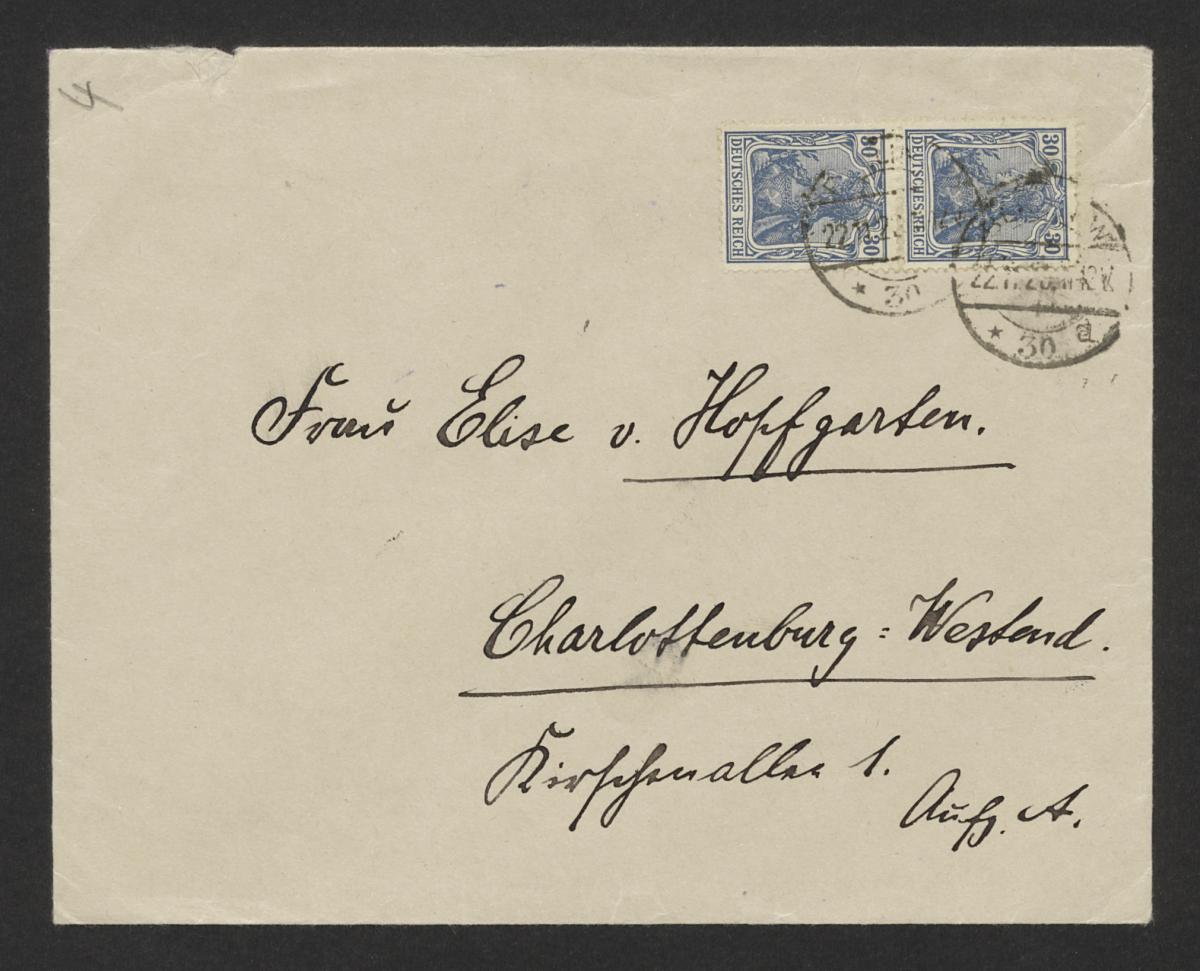 4
30 DEUTSCHES REICH 30
30 DEUTSCHES REICH 30
22.11.20
* 30
W
22.11.20. 11-12 V.
* 30 a
Frau Elise v. Hopfgarten.
Charlottenburg = Westend.
Kirschenallee 1.
Aufg. A.